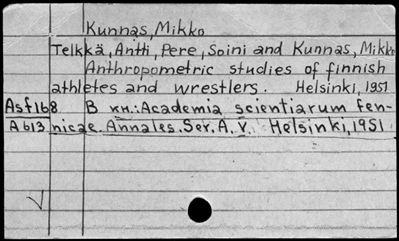 Kunnas, Mikko
Telkkä, Antti, Pere, Soini and Kunnas, Mikko
Anthropometric studies of finnish
athletes and wrestlers. Helsinki, 1951
Asf168 В кн.: Academia scientiarum fen-
A613 nicae. Annales. Ser. A. V. Helsinki, 1951.